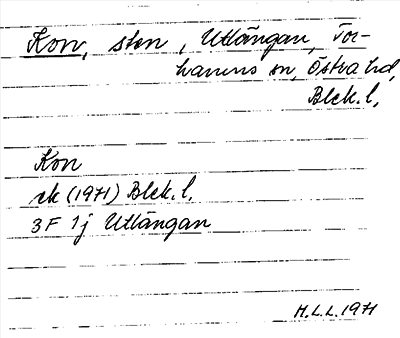 Kon, sten, Utlängan, Tor-
hamns sn, Östra hd,
Blek. l,
Kon
ek (1971) Blek. l.
3F 1j Utlängan
H.L.L. 1971